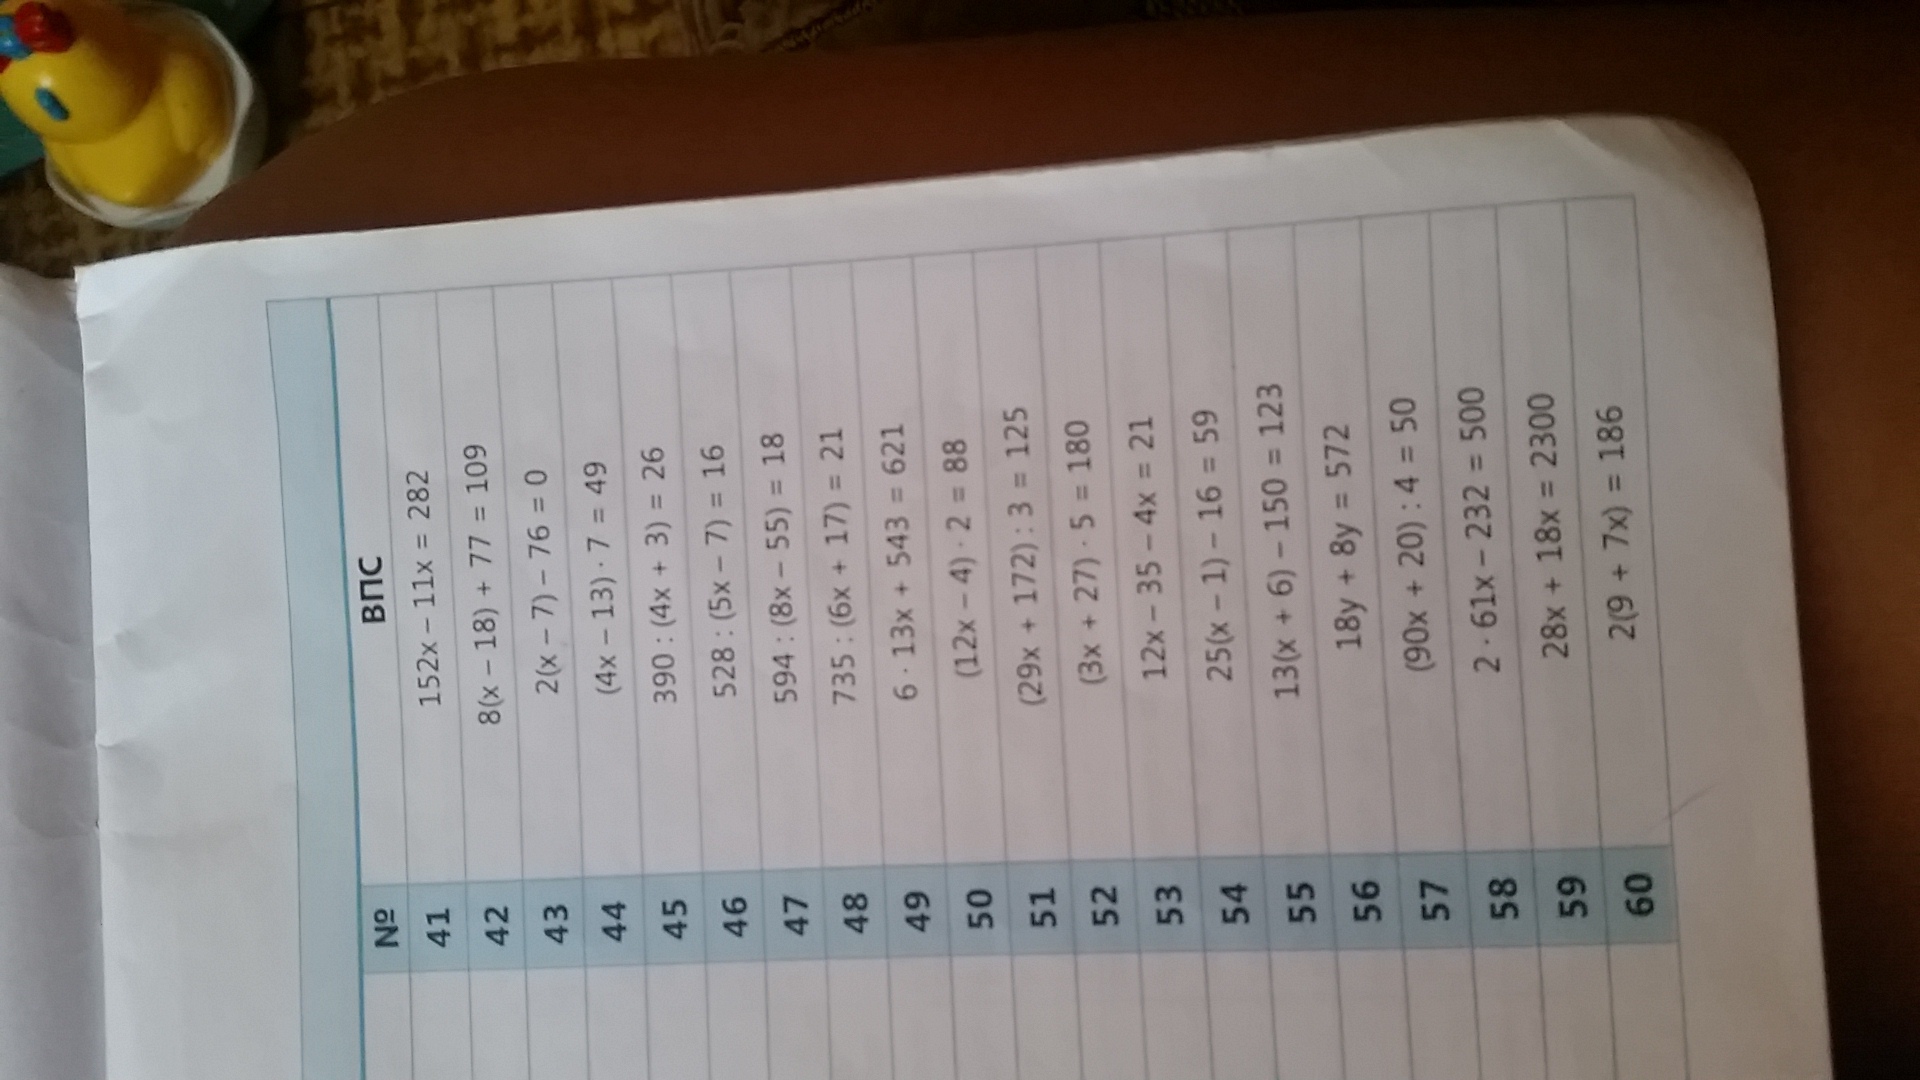 № ВПС
41 152x – 11x = 282
42 8(x – 18) + 77 = 109
43 2(x – 7) – 76 = 0
44 (4x – 13) · 7 = 49
45 390 : (4x + 3) = 26
46 528 : (5x – 7) = 16
47 594 : (8x – 55) = 18
48 735 : (6x + 17) = 21
49 6 · 13x + 543 = 621
50 (12x – 4) · 2 = 88
51 (29x + 172) : 3 = 125
52 (3x + 27) · 5 = 180
53 12x – 35 – 4x = 21
54 25(x – 1) – 16 = 59
55 13(x + 6) – 150 = 123
56 18y + 8y = 572
57 (90x + 20) : 4 = 50
58 2 · 61x – 232 = 500
59 28x + 18x = 2300
60 2(9 + 7x) = 186